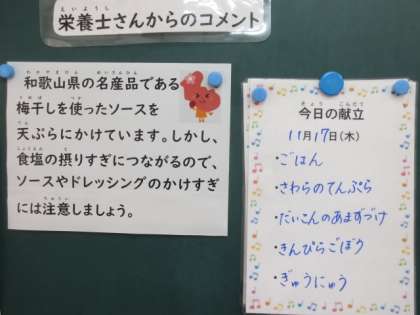 栄養士さんからのコメント
和歌山県の名産品である
梅干しを使ったソースを
天ぷらにかけています。しかし、
食塩の摂りすぎにつながるので、
ソースやドレッシングのかけすぎ
には注意しましょう。
今日の献立
11月17日(木)
・ごはん
・さわらのてんぷら
・だいこんのあまずづけ
・きんぴらごぼう
・ぎゅうにゅう